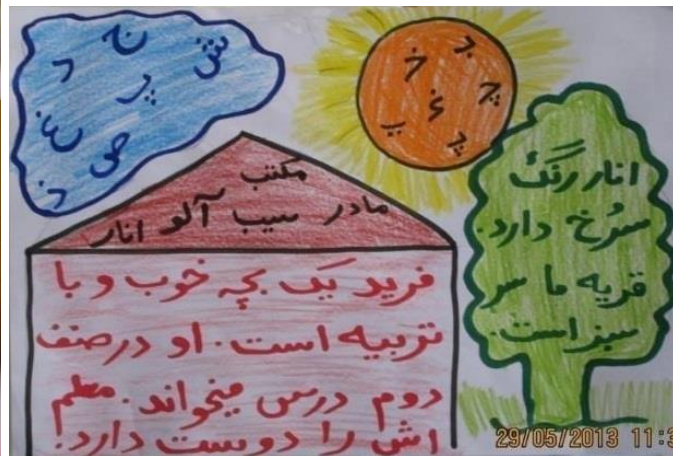 ش ج د
پ
غ ص
خ چ
ء پ
مکتب
مادر سیب آلو انار
فرید یک بچه خوب و با
تربیه است. او در صنف
دوم درس میخواند. معلم
اش را دوست دارد.
انار رنگ
سرُخ دارد.
قریه ما سر
سبز است.
29/05/2013 11:3